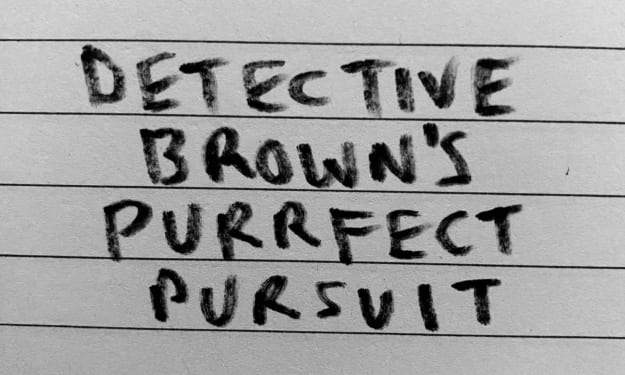 DETECTIVE
BROWN'S
PURRFECT
PURSUIT